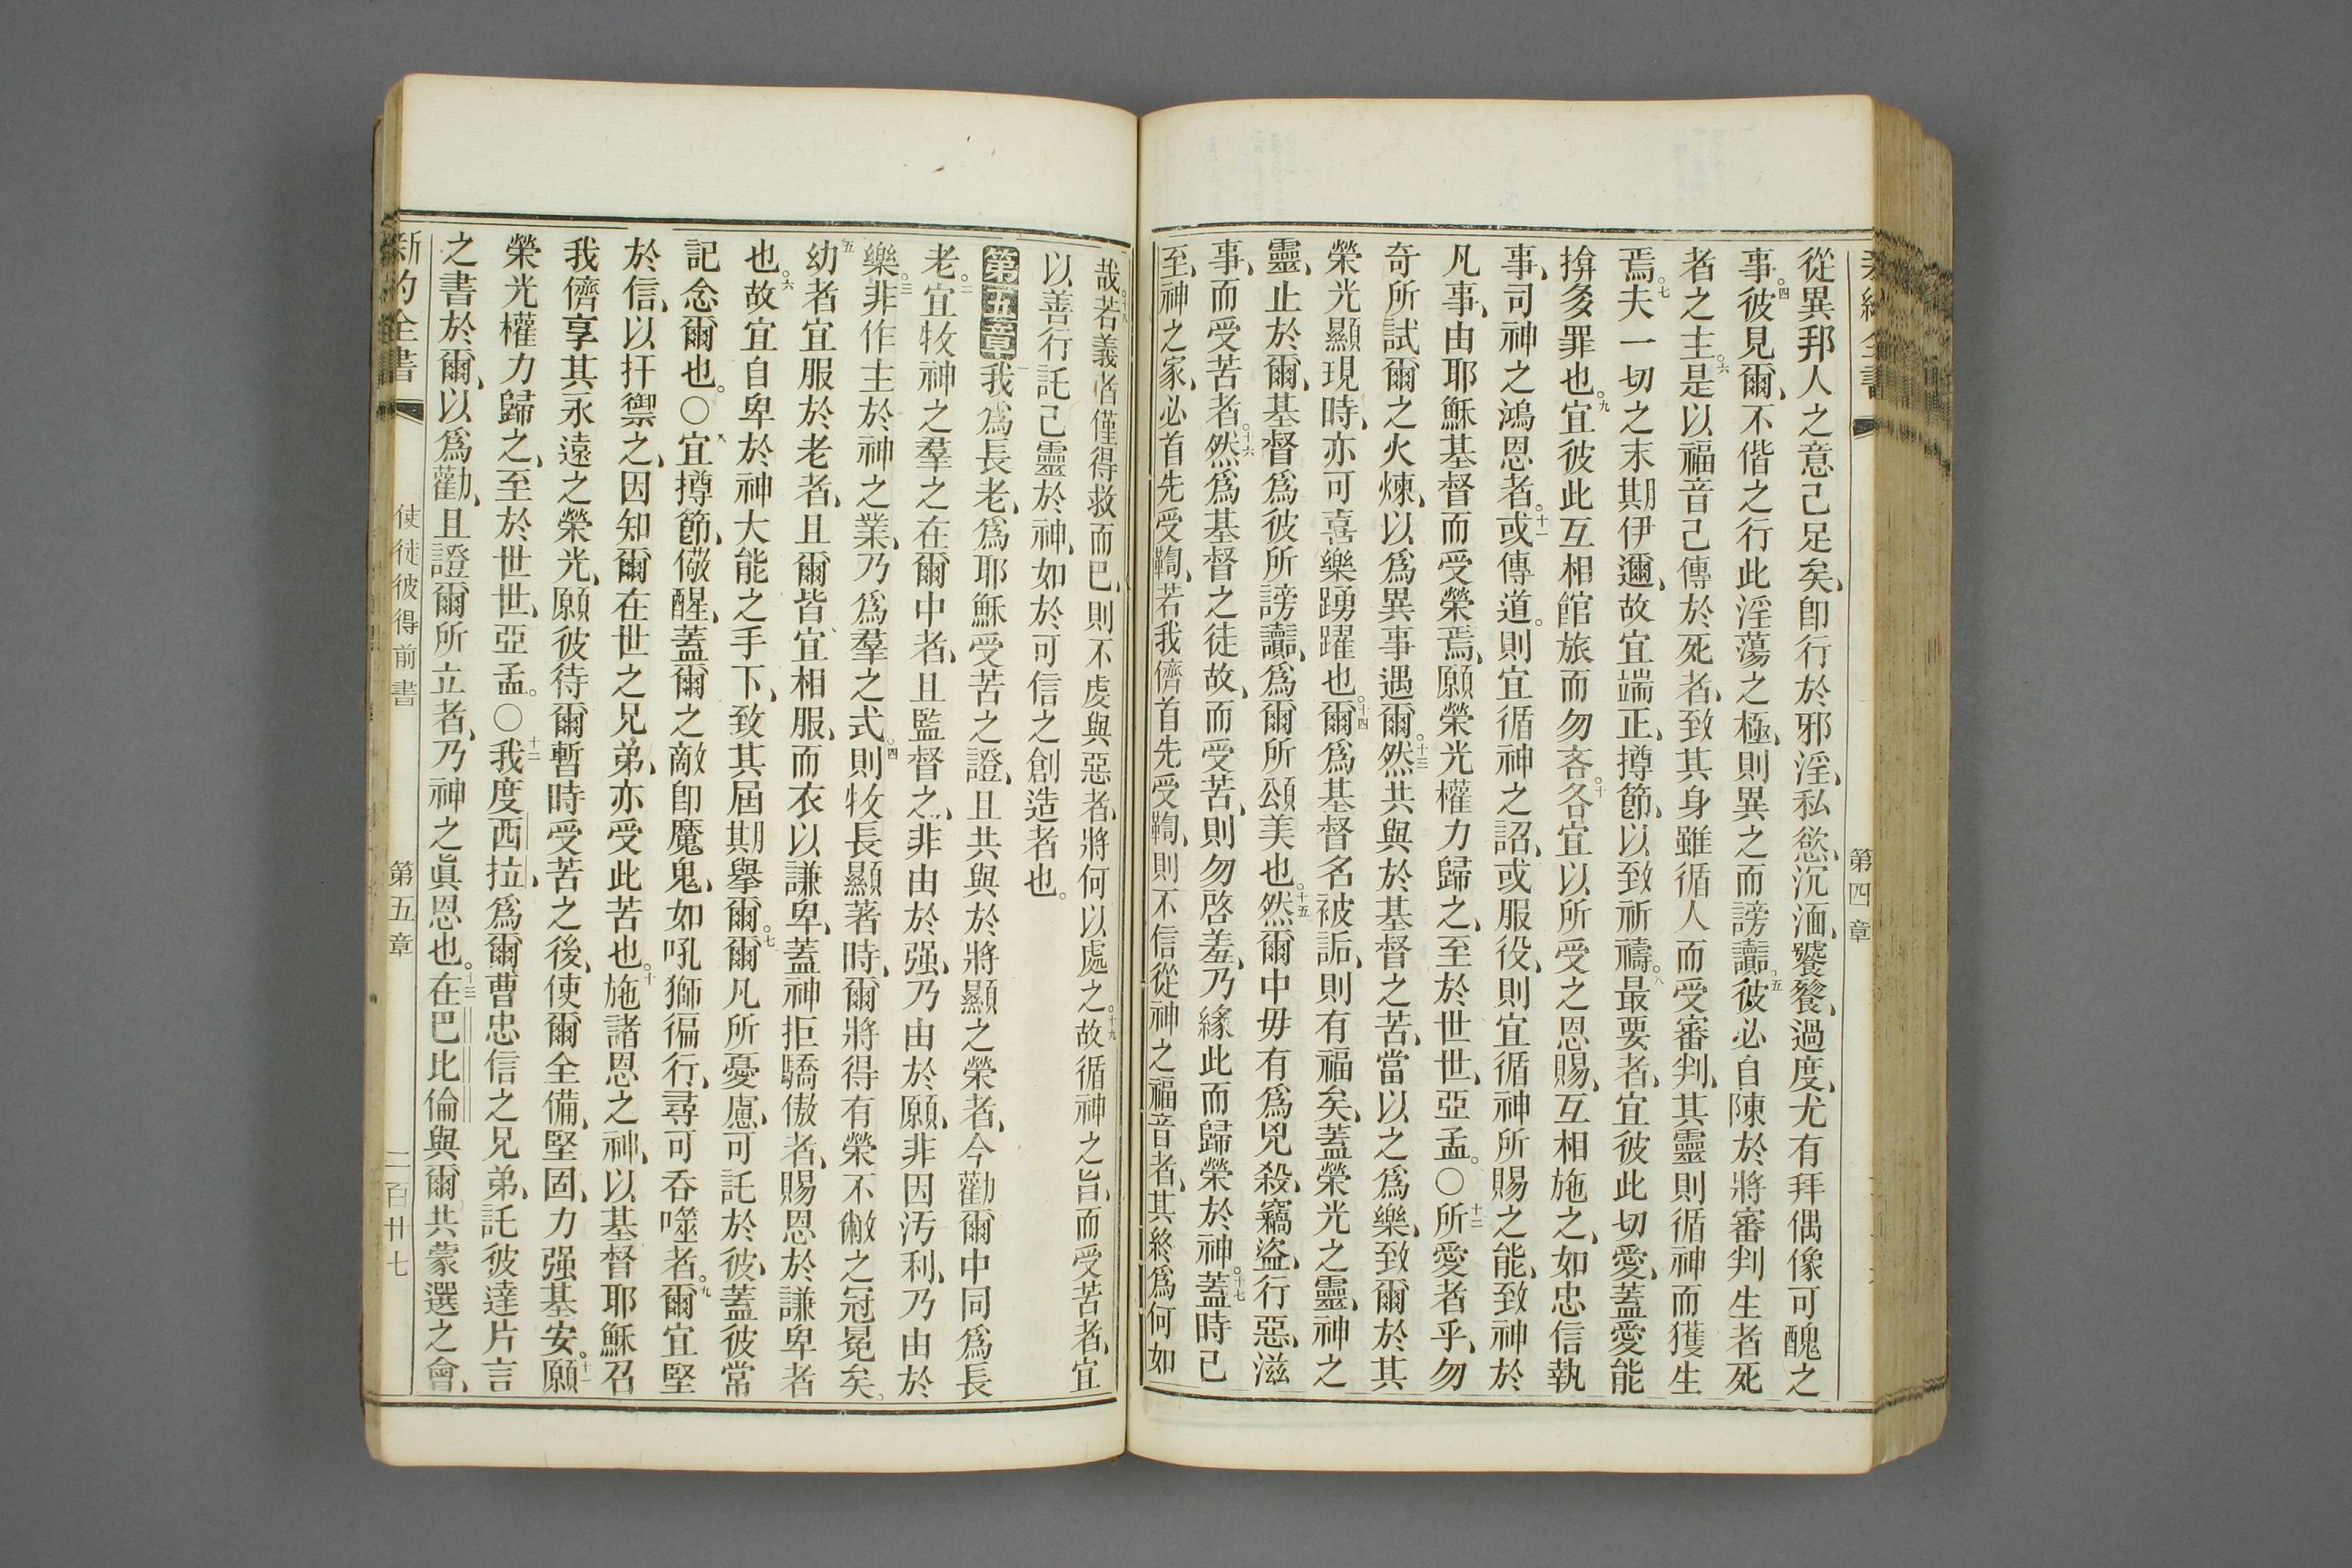 新約全書
第四章
從異邦人之意己足矣、卽行於邪淫、私慾、沉湎、饕餮、過度、尤有拜偶像可醜之
事。四彼見爾、不偕之行此淫蕩之極、則異之而謗讟、五彼必自陳於將審判生者死
者之主。六是以福音己傳於死者、致其身雖循人而受審判、其靈則循神而獲生
焉。七夫一切之末期伊邇、故宜端正、撙節、以致祈禱。八最要者、宜彼此切愛、蓋愛能
揜多罪也。九宜彼此互相館旅而勿吝。十各宜以所受之恩賜、互相施之、如忠信執
事、司神之鴻恩者。十一或傳道。則宜循神之詔、或服役、則宜循神所賜之能、致神於
凡事、由耶穌基督而受榮焉、願榮光權力歸之、至於世世、亞孟。〇十二所愛者乎、勿
奇所試爾之火煉、以爲異事遇爾。十三然共與於基督之苦、當以之爲樂、致爾於其
榮光顯現時、亦可喜樂踴躍也。十四爾爲基督名被詬、則有福矣、蓋榮光之靈、神之
靈、止於爾、基督爲彼所謗讟、爲爾所頌美也。十五然爾中毋有爲兇殺、竊盜、行惡、滋
事、而受苦者。十六然爲基督之徒故、而受苦、則勿啓羞、乃緣此而歸榮於神。十七蓋時已
至、神之家、必首先受鞫、若我儕首先受鞫、則不信從神之福音者、其終爲何如
哉。十八若義者僅得救而巳、則不虔與惡者、將何以處之。十九故循神之旨、而受苦者、宜
以善行託己靈於神、如於可信之創造者也。
第五章一我爲長老、爲耶穌受苦之證、且共與於將顯之榮者、今勸爾中同爲長
老。二宜牧神之羣之在爾中者、且監督之、非由於强、乃由於願、非因汚利、乃由於
樂。三非作主於神之業、乃爲羣之式。四則牧長顯著時、爾將得有榮不敝之冠冕矣。
五幼者宜服於老者、且爾皆宜相服、而衣以謙卑、蓋神拒驕傲者、賜恩於謙卑者
也。六故宜自卑於神大能之手下、致其屆期擧爾。七爾凡所憂慮、可託於彼、蓋彼常
記念爾也。〇八宜撙節、儆醒、蓋爾之敵卽魔鬼、如吼獅徧行、尋可吞噬者。九爾宜堅
於信、以扞禦之、因知爾在世之兄弟、亦受此苦也。十施諸恩之神、以基督耶穌召
我儕享其永遠之榮光、願彼待爾暫時受苦之後、使爾全備、堅固、力强基安。十一願
榮光權力歸之、至於世世、亞孟。〇十二我度西拉、爲爾曹忠信之兄弟、託彼達片言
之書於爾、以爲勸、且證爾所立者、乃神之眞恩也。十三在巴比倫與爾共蒙選之會、
新約全書
使徒彼得前書
第五章
二百廿七